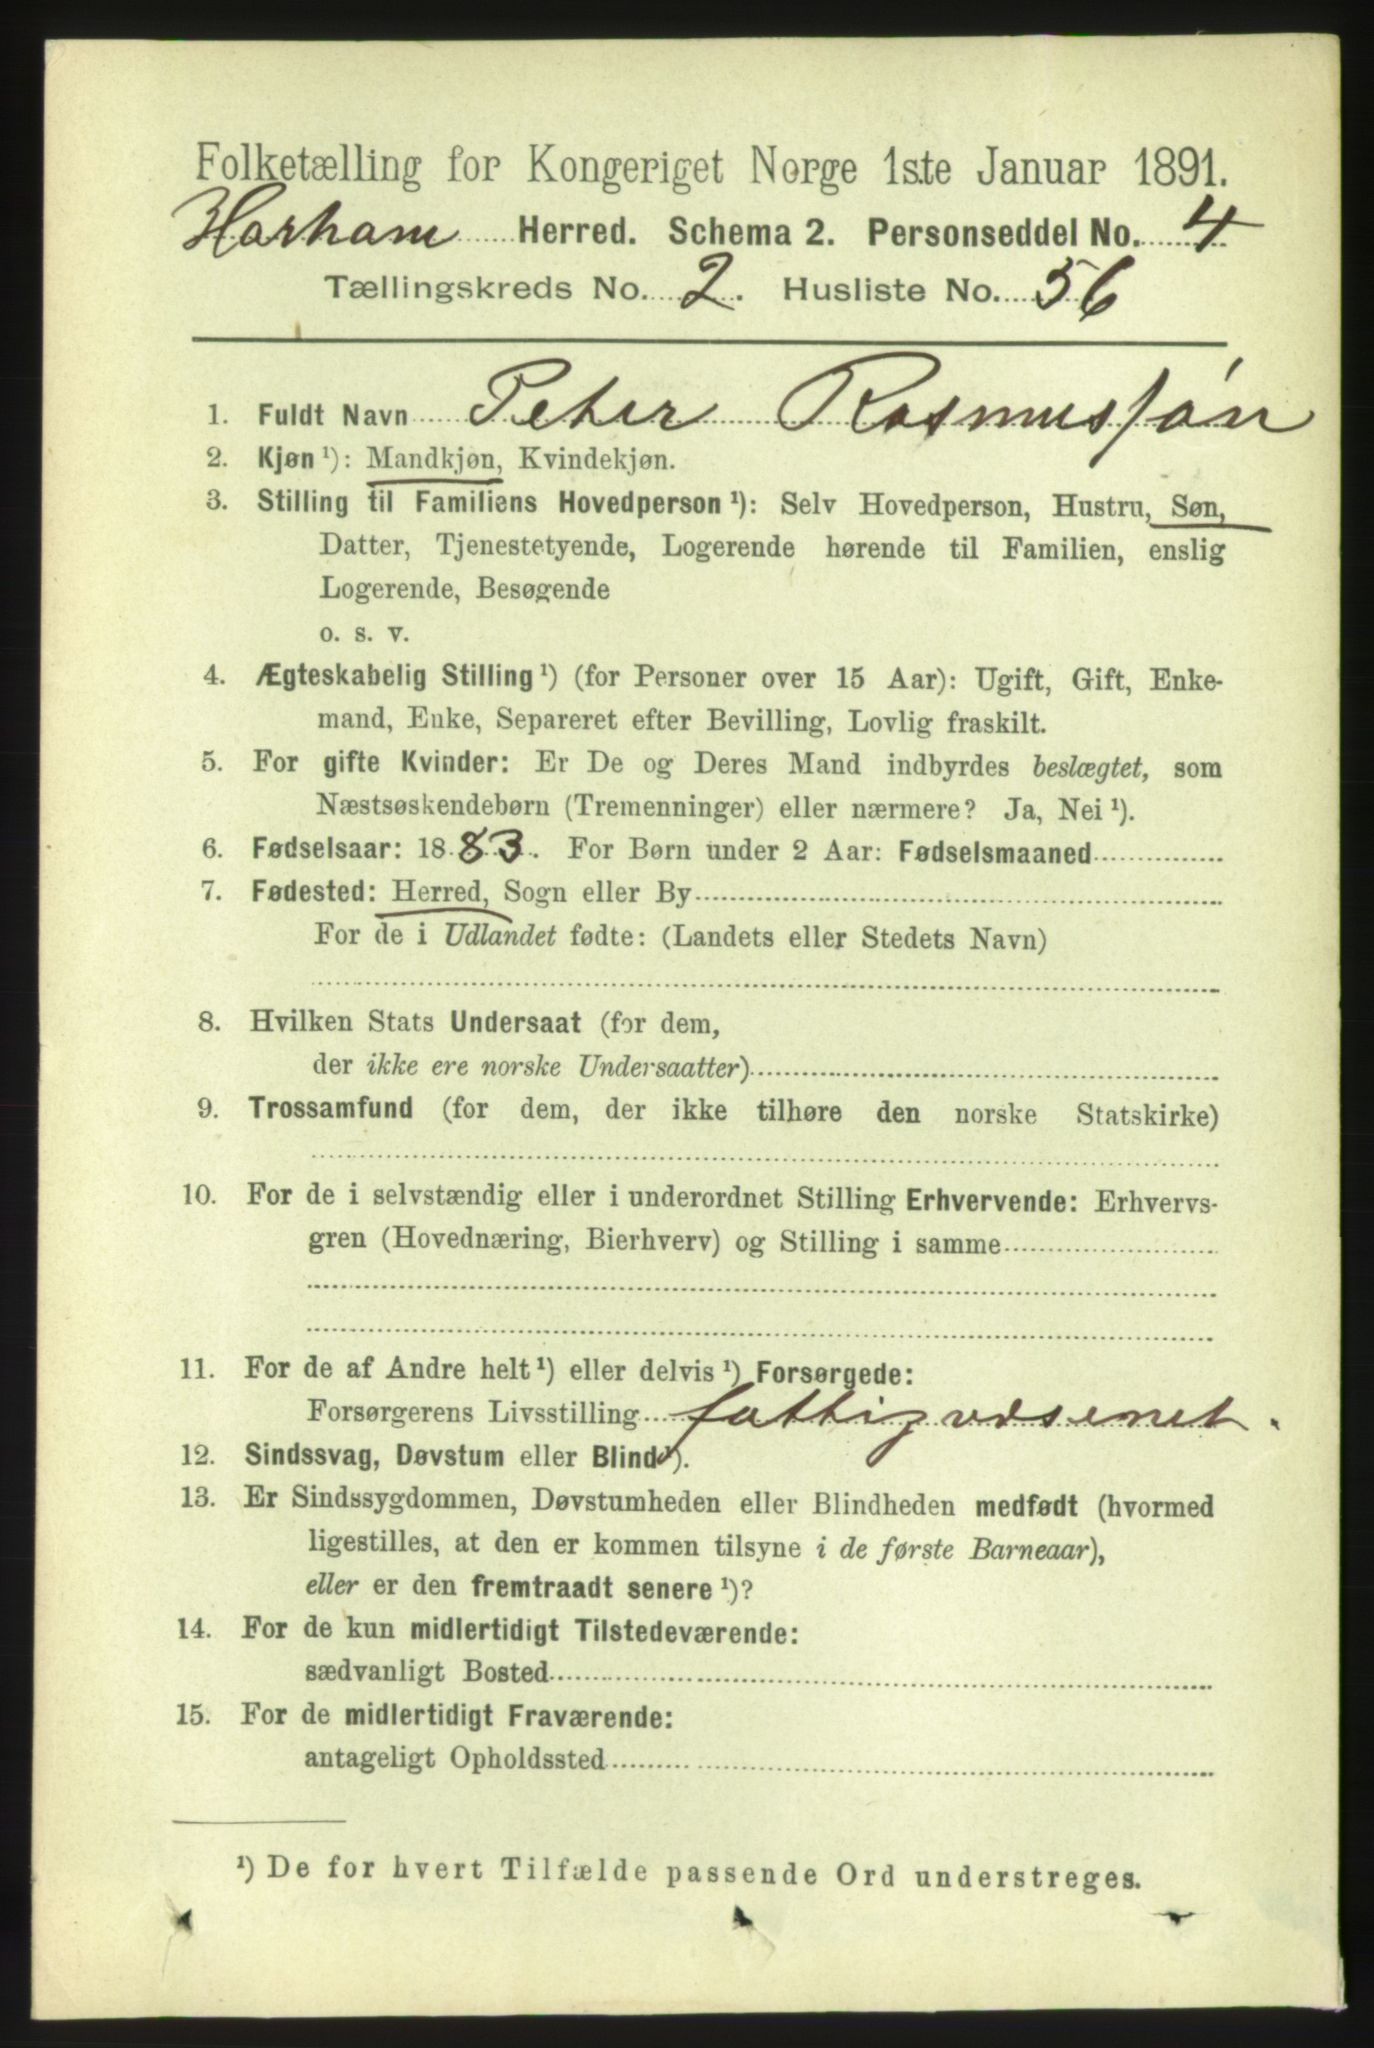 Folketælling for Kongeriget Norge 1ste Januar 1891.
Harham Herred. Schema 2. Personseddel No. 4
Tællingskreds No. 2. Husliste No. 56
1. Fuldt Navn Peter Rasmussøn
2. Kjøn ¹): Mandkjøn, Kvindekjøn.
3. Stilling til Familiens Hovedperson ¹): Selv Hovedperson, Hustru, Søn,
Datter, Tjenestetyende, Logerende hørende til Familien, enslig
Logerende, Besøgende
o. s. v.
4. Ægteskabelig Stilling ¹) (for Personer over 15 Aar): Ugift, Gift, Enke-
mand, Enke, Separeret efter Bevilling, Lovlig fraskilt.
5. For gifte Kvinder: Er De og Deres Mand indbyrdes beslægtet, som
Næstsøskendebørn (Tremenninger) eller nærmere? Ja, Nei ¹).
6. Fødselsaar: 1883. For Børn under 2 Aar: Fødselsmaaned
7. Fødested: Herred, Sogn eller By
For de i Udlandet fødte: (Landets eller Stedets Navn)
8. Hvilken Stats Undersaat (for dem,
der ikke ere norske Undersaatter)
9. Trossamfund (for dem, der ikke tilhøre den norske Statskirke)
10. For de i selvstændig eller i underordnet Stilling Erhvervende: Erhvervs-
gren (Hovednæring, Bierhverv) og Stilling i samme
11. For de af Andre helt ¹) eller delvis ¹) Forsørgede:
Forsørgerens Livsstilling fattigvæsenet.
12. Sindssvag, Døvstum eller Blind ¹).
13. Er Sindssygdommen, Døvstumheden eller Blindheden medfødt (hvormed
ligestilles, at den er kommen tilsyne i de første Barneaar),
eller er den fremtraadt senere ¹)?
14. For de kun midlertidigt Tilstedeværende:
sædvanligt Bosted
15. For de midlertidigt Fraværende:
antageligt Opholdssted
¹) De for hvert Tilfælde passende Ord understreges.